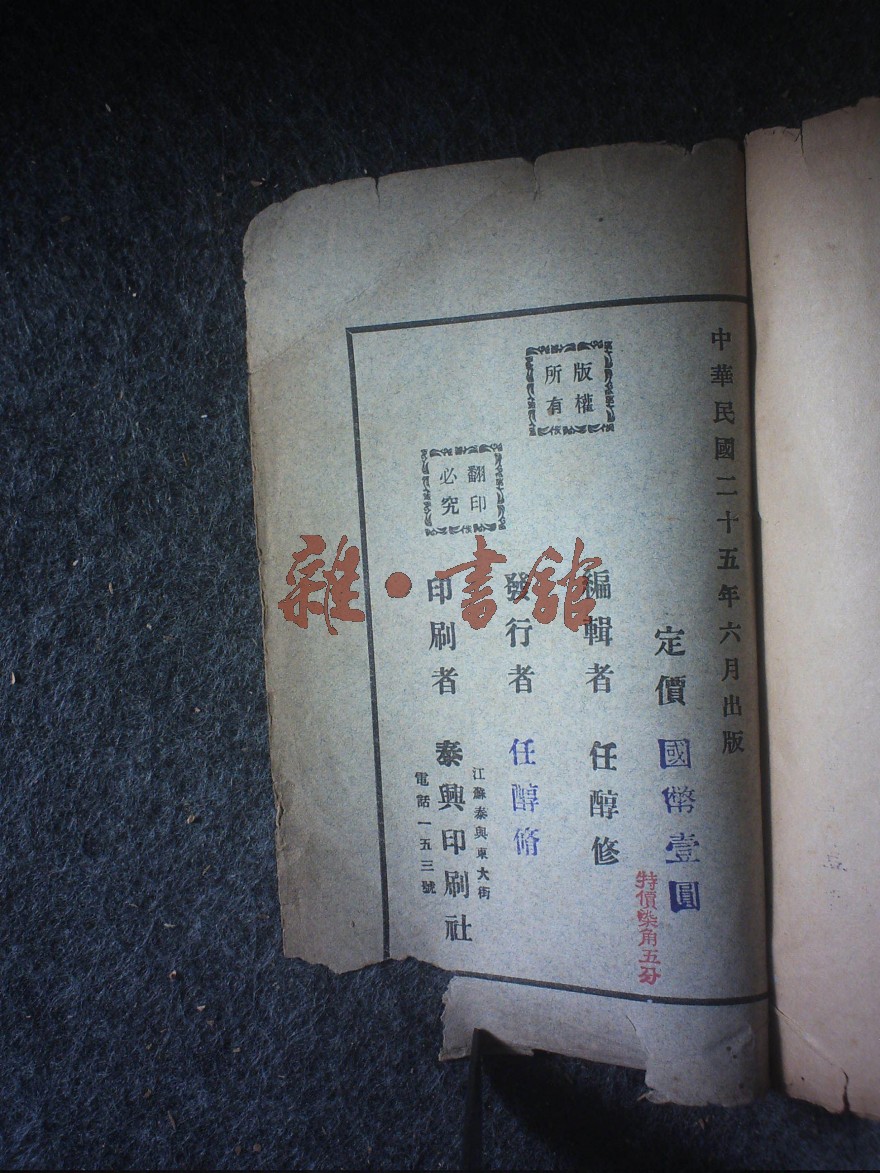 中華民國二十五年六月出版
定價 國幣壹圓
特價柒角五分
版權
所有
編輯者 任醇修
發行者 任醇脩
翻印
必究
江蘇泰興東大街
印刷者 泰興印刷社
電話一五三號
雜·書館